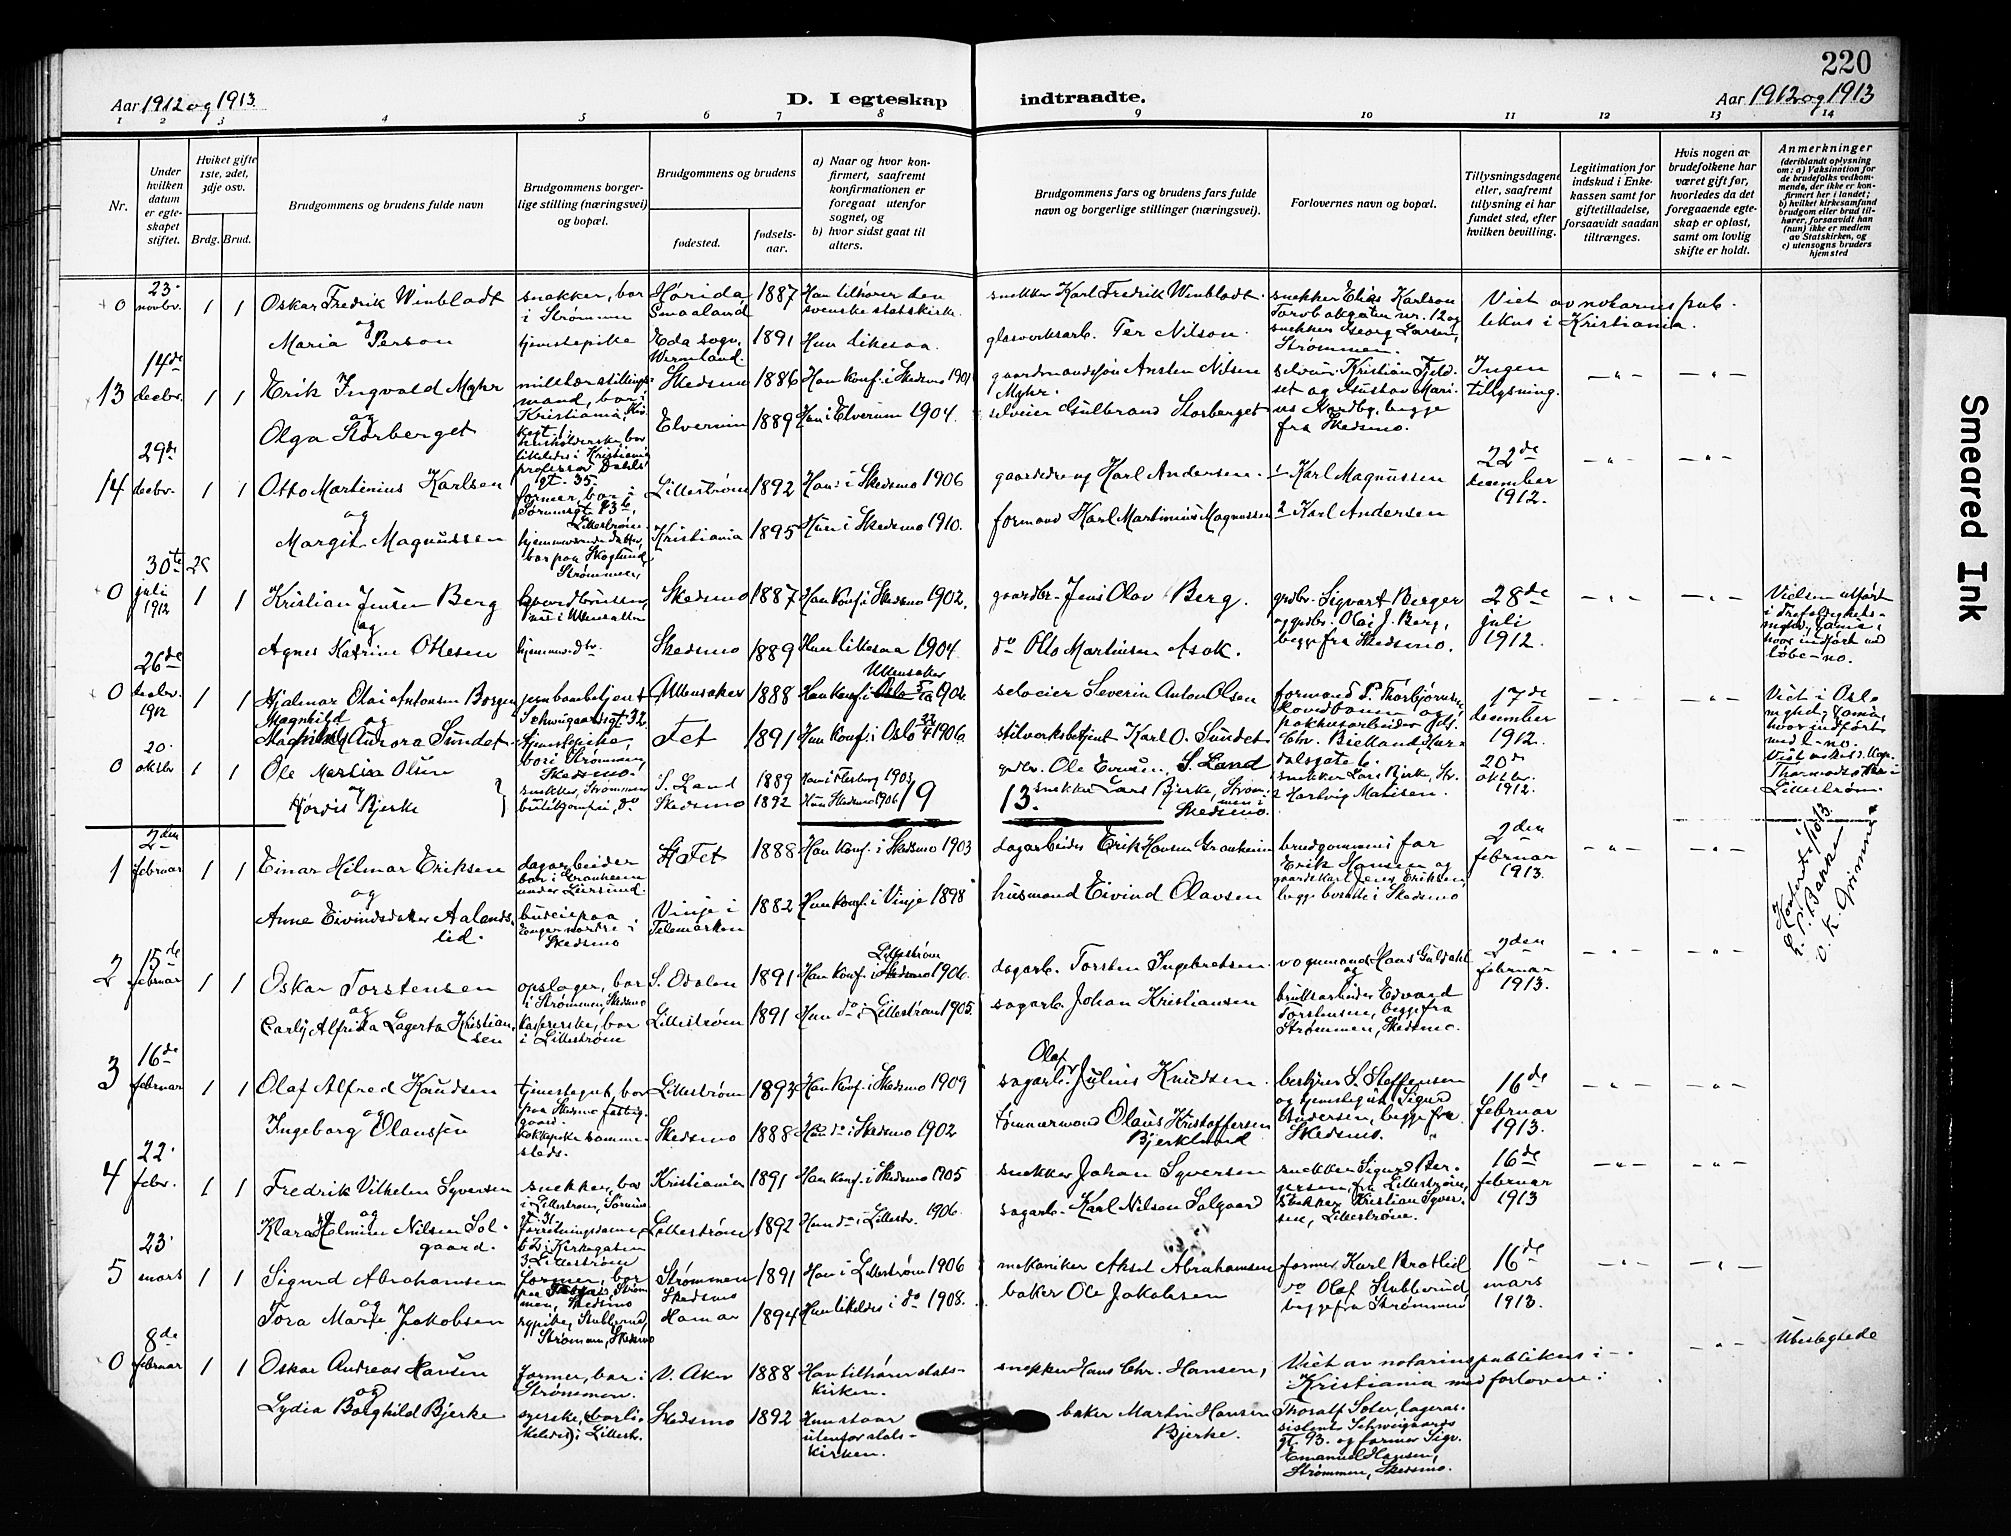 220
Aar 1912 og 1913.
D. I egteskap
indtraadte.
Aar 1912 og 1913
1 2 3 4 5 6 7 8 9 10 11 12 13 14
Nr.
Under hvilken datum er egteskapet stiftet.
Hviket gifte 1ste, 2det, 3dje osv.
Brdg. Brud.
Brudgommens og brudens fulde navn
Brudgommens borgerlige stilling (næringsvei) og bopæl.
Brudgommens og brudens
fødested.
fødselsaar.
a) Naar og hvor konfirmert, saafremt konfirmationen er foregaat utenfor sognet, og
b) hvor sidst gaat til alters.
Brudgommens fars og brudens fars fulde navn og borgerlige stillinger (næringsvei).
Forlovernes navn og bopæl.
Tillysningsdagene eller, saafremt tillysning ei har fundet sted, efter hvilken bevilling.
Legitimation for indskud i Enkekassen samt for giftetilladelse, forsaavidt saadan tiltrænges.
Hvis nogen av brudefolkene har været gift før, hvorledes da det foregaaende egteskap er opløst, samt om lovlig skifte er holdt.
Anmerkninger
(deriblandt oplysning om: a) Vaksination for de brudefolks vedkommende, der ikke er konfirmert her i landet;
b) hvilket kirkesamfund brudgom eller brud tilhører, forsaavidt han (hun) ikke er medlem av Statskirken, og
c) utensogns bruders hjemsted
0 23. novbr. 1 1 Oskar Fredrik Winbladt snekker, bor i Strømmen Smaaland 1887 Han tilhører den svenske statskirke. snekker Karl Fredrik Winbladt. snekker Elias Karlson nr. 12 og snekker Georg Larsen, Strømmen. Viet av notarius publikus i Kristiania.
og
Maria Person tjenestepike Eda sogn, Wermland. 1891 Hun likesaa. glasverksarb. Per Nilson.
13 14de decbr. 1 1 Erik Ingvald Myhr bor i Kristiania Skedsmo 1886 Han konf. i Skedsmo 1901 gaardmandssøn Ansten Nilsen Myhr. selveier Kristian Fjeldset og Gustav Marius Nordby, begge fra Skedsmo. Ingen tillysning.
og
Olga Storberget husholderske, bor likeledes i Kristiania professor Dahls gt. 35. Elverum 1889 Hun i Elverum 1904. selveier Gulbrand Storberget
14 29de decbr. 1 1 Otto Martinius Karlsen former, bor i Lillestrøm. Lillestrøm 1892 Han i Skedsmo 1906 Karl Andersen. 1 Karl Magnussen 22de december 1912.
og
Margit Magnussen hjemmeværende datter, bor paa Skoglund, Strømmen, Kristiania 1895 Hun i Skedsmo 1910. formand Karl Martinius Magnussen 2 Karl Andersen
0 30te juli 1912 1 1 Kristian Jensen Berg Skedsmo 1887 Han konf. i Skedsmo 1902. gaardbr. Jens Olav Berg. grdbr. Sigvart Berger og grdbr. Olai J. Berg, begge fra Skedsmo. 28de juli 1912. Vielsen utført i Trefoldighets-
og
Agnes Katrine Ottesen Skedsmo 1889 Hun likesaa 1904. do Otto Martinsen Asak. løbe-no.
0 26de decbr. 1912 1 1 Hjalmar Olai Antonsen Borgen jernbanebetjent Schweigaardsgt. 32 Ullensaker 1888 Han konf. i Ullensaker 1902 selveier Severin Anton Olsen formand P. Thorbjørnsen 17de december 1912. Viet i Oslo
og
Magnhild Aurora Sundet tjenestepike, bor i Strømmen, Skedsmo. Fet 1891 Hun konf. i Oslo 1906 Karl O. Sundet
0 20. oktbr 1 1 Ole Martin Olsen snekker, Strømmen S. Land 1889 Han i Flesberg 1903 grdbr. Ole Evensen, S. Land snekker Lars Bjerke, Str. 20de oktbr. 1912. Lillestrøm.
og
Hørdis Bjerke do Skedsmo 1892 Hun Skedsmo 1906 snekker Lars Bjerke, Strømmen i Skedsmo. 2 Hartvig Matisen.
19 13.
1 2den februar 1 1 Einar Hilmar Eriksen dagarbeider bor i Granheim under Leirsund. Fet 1888 Han konf. i Skedsmo 1903 dagarbeider Erik Hansen Granheim brudgommens far Erik Hansen og gaardskarl Jens Eriksen, begge bosatte i Skedsmo 2den februar 1913.
og
Anne Eivindsdatter Aalandslid. budeie paa nordre i Skedsmo Vinje i Telemarken 1882 Hun konf. i Vinje 1898 husmand Eivind Olavsen
2 15de februar 1 1 Oskar Torstensen opslager, bor i Strømmen, Skedsmo S. Odalen 1891 Han konf. i Lillestrøm 1906. dagarb. Torsten Ingebretsen. vognmand Hans Guldahl og bruksarbeider Edvard Torstensen, begge fra Strømmen, Skedsmo. 2den februar 1913.
og
Carly Alfrida Lagerta Kristiansen kassererske, bor i Lillestrøm Lillestrøm 1891 Hun do i Lillestrøm 1905. sagarb. Johan Kristiansen
3 16de februar 1 1 Olaf Alfred Knudsen tjenestegut, bor paa Skedsmo fattiggaard. Lillestrøm 1893 Han konf. i Skedsmo 1909 sagarb. Olaf Julius Knudsen. bestyrer S. Steffensen og tjenestegut Sigurd Andersen, begge fra Skedsmo. 16de februar 1913.
og
Ingeborg Olaussen kokkepike sammesteds. Skedsmo 1888 Hun do i Skedsmo 1902 tømmermand Olaus Kristoffersen Bjerklund
4 22. febr. 1 1 Fredrik Vilhelm Syversen snekker, bor i Lillestrøm, Kristiania 1891 Han konf. i Skedsmo 1905 snekker Johan Syversen snekker Sigurd Bergersen, fra Lillestrøm, snekker Kristian Syversen, Lillestrøm. 16de februar 1913
og
Klara Helmine Nilsen Solgaard. forretningsdame, Kirkegaten 3, Lillestrøm Lillestrøm 1892 Hun do i Lillestr. 1906. sagarb. Karl Nilsen Solgaard
5 23. mars 1 1 Sigurd Abrahamsen former, bor Strømmen, Skedsmo Strømmen Skedsmo 1891 Han i Lillestrøm 1906 mekaniker Aksel Abrahamsen former Karl Bratlid do Olaf Stubberud begge fra Strømmen 16de mars 1913.
og
Tora Marie Jakobsen sypike, Stubberud, Strømmen, Skedsmo Hamar 1894 Hun likeledes i do 1908. baker Ole Jakobsen
0 8de februar 1 1 Oskar Andreas Hansen former, bor i Strømmen. V. Aker 1888 Han tilhører statskirken. snekker Hans Chr. Hansen, Viet av notarius publikus i Kristiania med forlovere: Ubeslegtede
og
Lydia Borghild Bjerke syerske, bor likeledes i Lillestr. Skedsmo 1892 Hun staar utenfor statskirken. baker Martin Hansen Bjerke. Thoralf Soter, lagerassistent Schweigaards gt. 93. og former Sigv. Emanuel Hansen, Strømmen, Skedsmo.
Smeared Ink